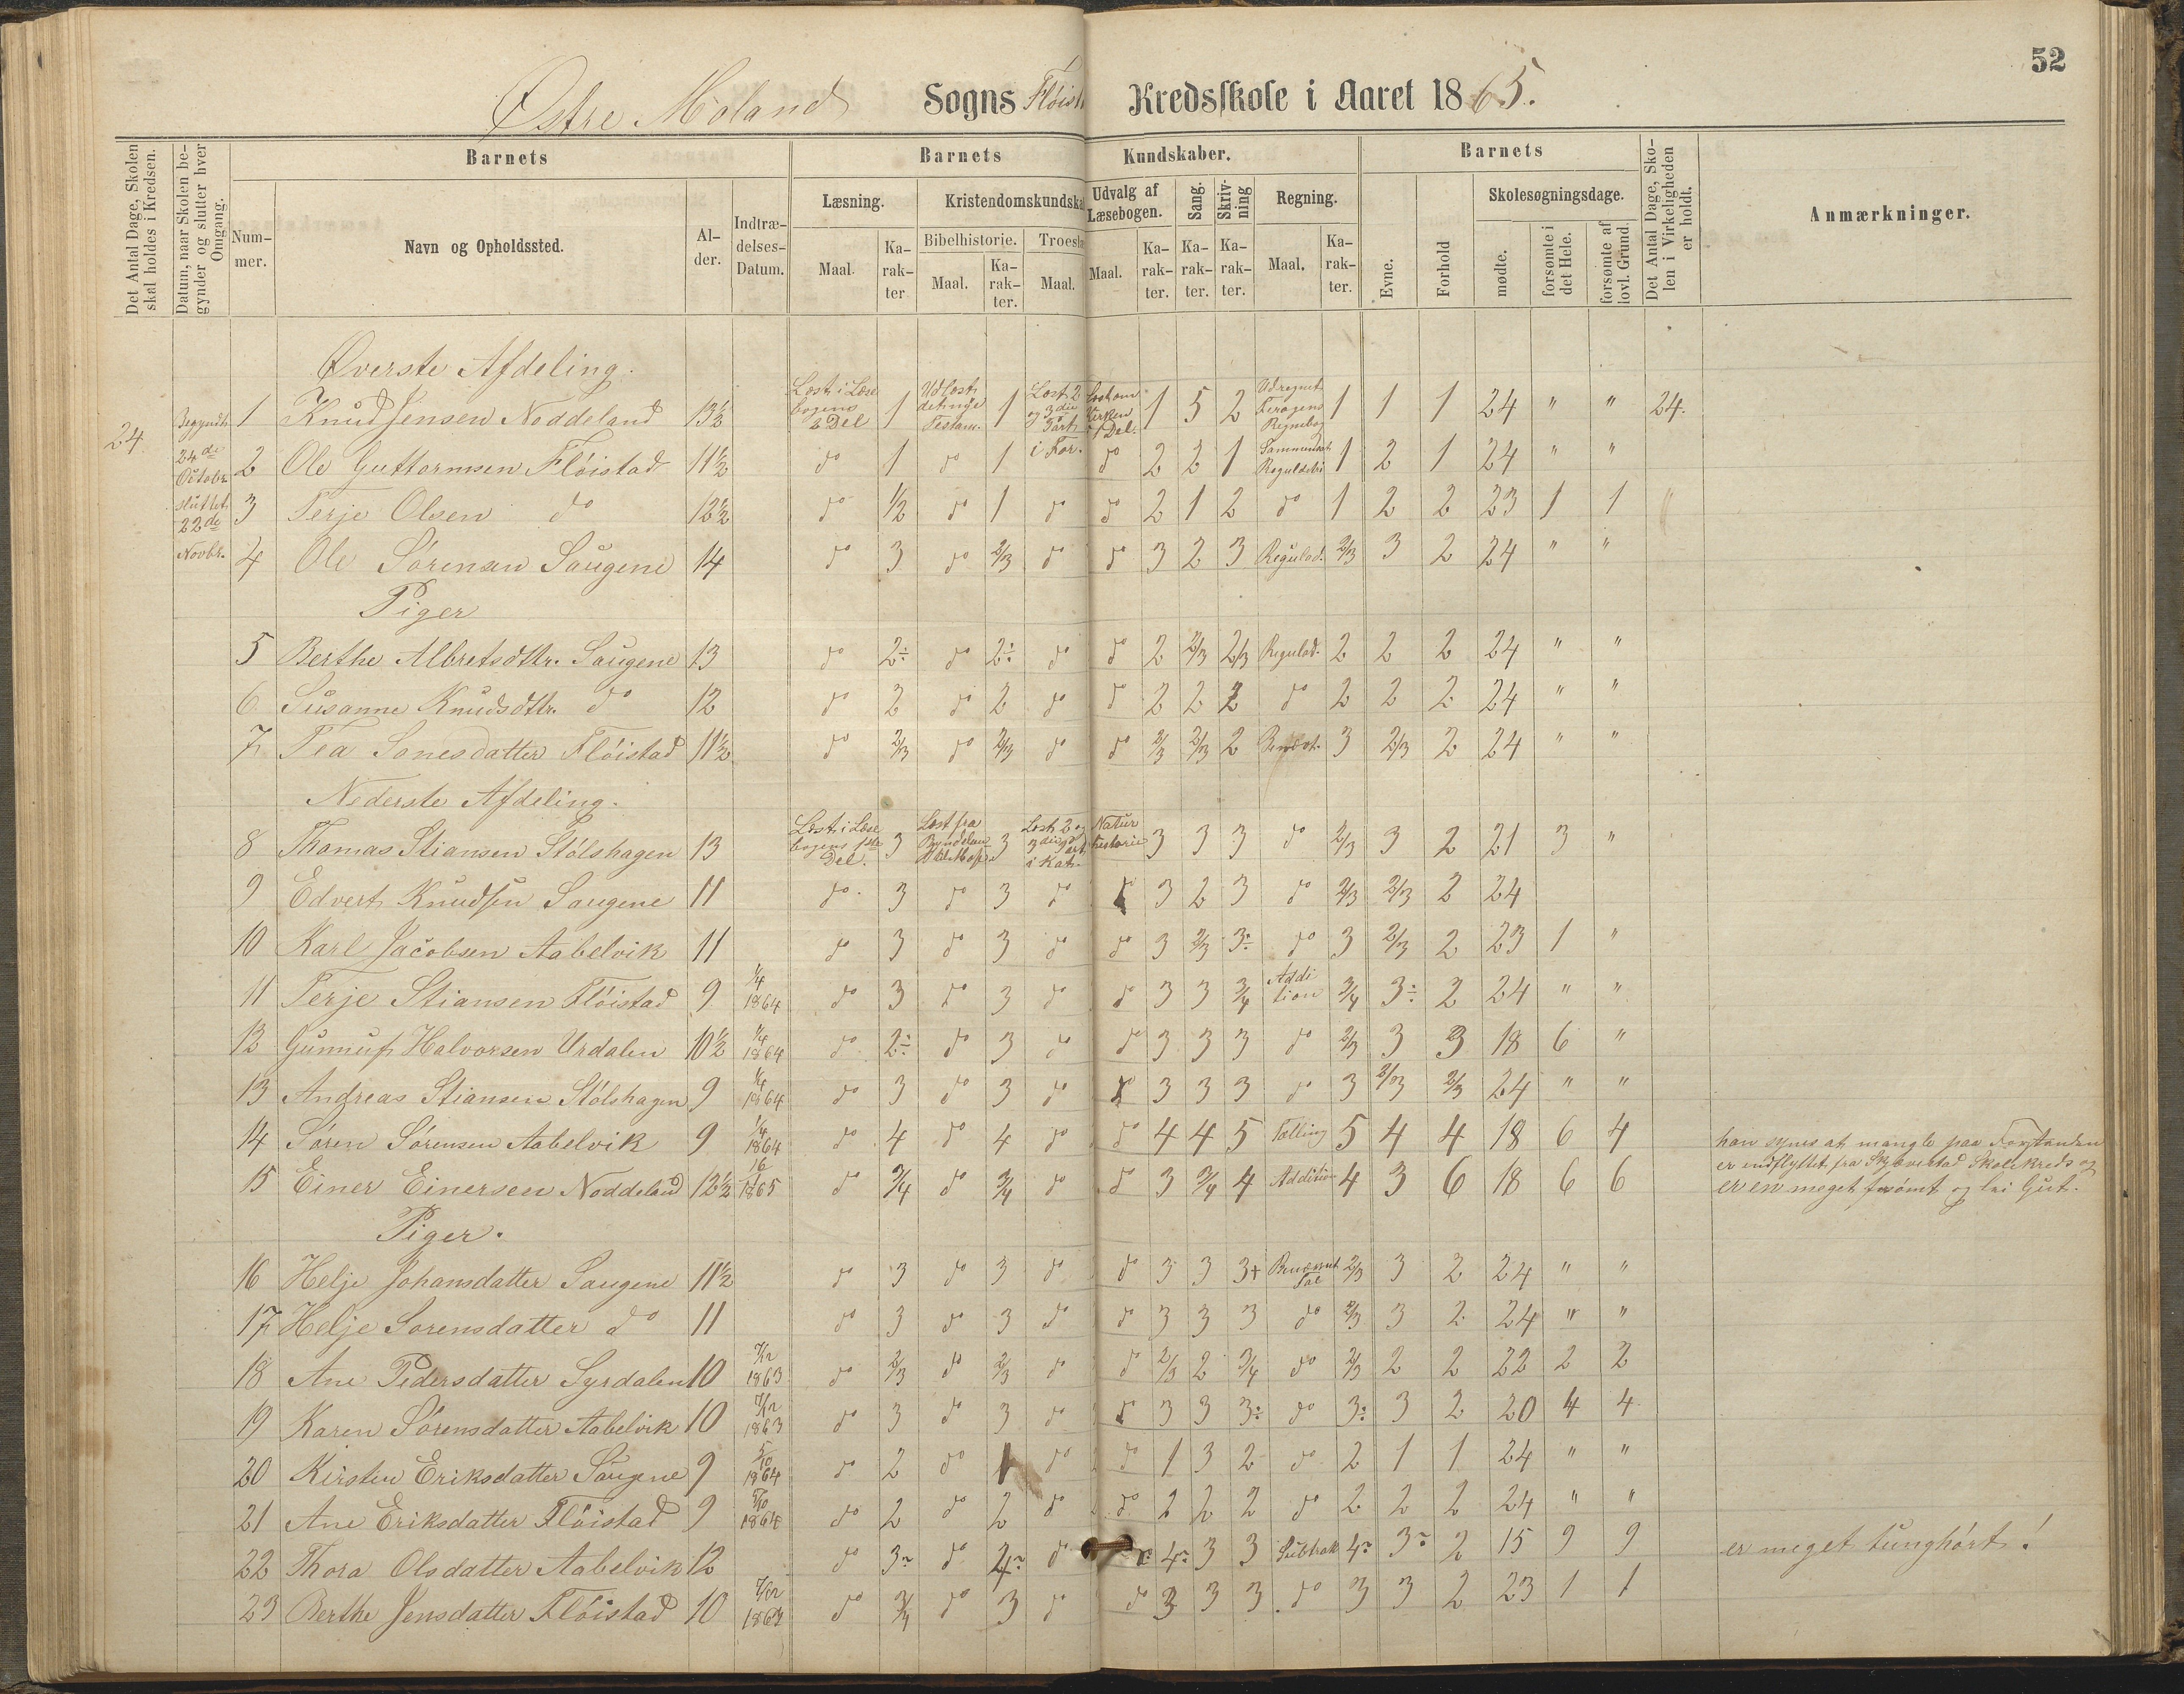 52
Østre Moland Sogns Flöist Kredsskole i Aaret 1865.
Det Antal Dage, Skolen skal holdes i Kredsen.
Datum, naar Skolen begynder og slutter hver Omgang.
Barnets
Barnets Kundskaber.
Barnets
Det Antal Dage, Skolen i Virkeligheden er holdt.
Anmærkninger.
Nummer.
Navn og Opholdssted.
Alder.
Indtrædelses-Datum.
Læsning.
Kristendomskundska
Udvalg af Læsebogen.
Sang.
Skrivning
Regning.
Evne.
Forhold
Skolesøgningsdage.
Bibelhistorie.
Troesl
Maal.
Karakter
Maal.
Karakter.
Maal.
Maal.
Karakter.
Karakter.
Karakter.
Maal.
Karakter.
mødte.
forsømte i det Hele.
forsømte af lovl. Grund.
Øverste Afdeling.
24 Begyndt 24de Octobr. sluttet 22de Novbr.
1 Knud Jensen Noddeland 13½ Læst i Læsebogens 2 Del 1 Udlæst det nye Testam. 1 Læst 2 og 3die Part i For. 1 5 2 Udregnet Regnebog 1 1 1 24 " " 24.
2 Ole Guttormsen Flöistad 11½ do 1 do 1 do 2 2 1 1 2 1 24 " "
3 Terje Olsen do 12½ do ½ do 1 do do 2 1 2 do 1 2 2 23 1 1
4 Ole Sörensen Saugene 14 do 3 do 2/3 do do 3 2 3 Regulad. 2/3 3 2 24 " "
Piger
5 Berthe Albretsdttr. Saugene 13 do 2÷ do 2÷ do do 2 2/3 2/3 Regulad. 2 2 2 24 " "
6 Susanne Knudsdttr. do 12 do 2 do 2 do do 2 2 2 do 2 2 2 24 " "
7 Tea Sonesdatter Flöistad 11½ do 2/3 do 2/3 do do 2/3 2/3 2 3 2/3 2 24 " "
Nederste Afdeling.
8 Thomas Stiansen Stölshagen 13 Læst i Læsebogens 1ste Del. 3 Læst fra 3 Læst 2 og 3die Part i Kat. Naturhistorie 3 3 3 do 2/3 3 2 21 3 "
9 Edvert Knudsen Saugene 11 do. 3 do 3 do do 3 2 3 do 2/3 2/3 2 24
10 Karl Jacobsen Aabelvik 11 do 3 do 3 do do 3 2/3 3÷ do 3 2/3 2 23 1 "
11 Terje Stiansen Flöistad 9 1/4 1864 do 3 do 3 do do 3 3 3/4 Addition 3/4 3÷ 2 24 " "
12 Gunnuf Halvorsen Urdalen 10½ 1/4 1864 do 2÷ do 3 do do 3 3 3 do 2/3 3 3 18 6 "
13 Andreas Stiansen Stölshagen 9 1/4 1864 do 3 do 3 do do 3 3 3 do 3 2/3 2/3 24 " "
14 Sören Sörensen Aabelvik 9 1/4 1864 do 4 do 4 do do 4 4 5 Tælling 5 4 4 18 6 4 han synes at mangle paa Forstanden
15 Einer Einersen Noddeland 12½ 16 1865 do 3/4 do 3/4 do do 3 3/4 4 Addition 4 3 6 18 6 6 er indflyttet fra Skjeverstad Skolekreds og
er en meget forsömt og lei Gut.
Piger.
16 Helje Johansdatter Saugene 11½ do 3 do 3 do do 3 3 3+ Benævnt Tal 2/3 3 2 24 " "
17 Helje Sorensdatter do 11 do 3 do 3 do do 3 3 3 do 2/3 3 2 24 " "
18 Ane Pedersdatter Syrdalen 10 7/12 1863 do 2/3 do 2/3 do do 2/3 2 3/4 do 2/3 2 2 22 2 2
19 Karen Sörensdatter Aabelvik 10 7/12 1863 do 3 do 3 do do 3 3 3÷ do 3÷ 3 2 20 4 4
20 Kirsten Eriksdatter Saugene 9 5/10 1864 do 2 do 1 do do 1 3 2 do 2 1 1 24 " "
21 Ane Eriksdatter Flöistad 9 5/10 1864 do 2 do 2 do do 2 2 2 do 2 2 2 24 " "
22 Thora Olsdatter Aabelvik 12 do 3÷ do 4÷ do 4÷ 3 3 Subtrak 4÷ 3÷ 2 15 9 9 er meget tunghört!
23 Berthe Jensdatter Flöistad 10 7/12 do 3/4 do 3 do do 3 3 3 do 3 3 2 23 1 1